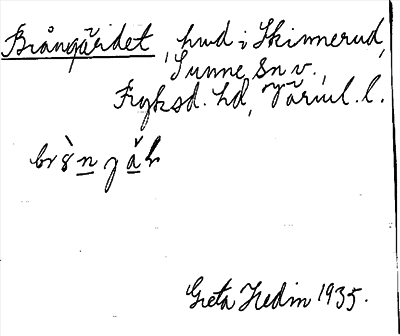 Brångärdet, hmd i Skinnerud,
Sunne sn v.,
Fryksd. hd, Värml. l.
Greta Hedin 1935.